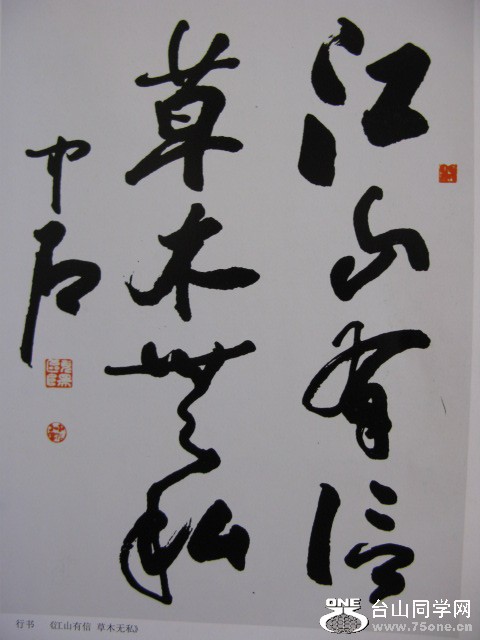 江山有信
草木無私
中石
行书 《江山有信 草木无私》
ONE
台山同学网
www.75one.cn